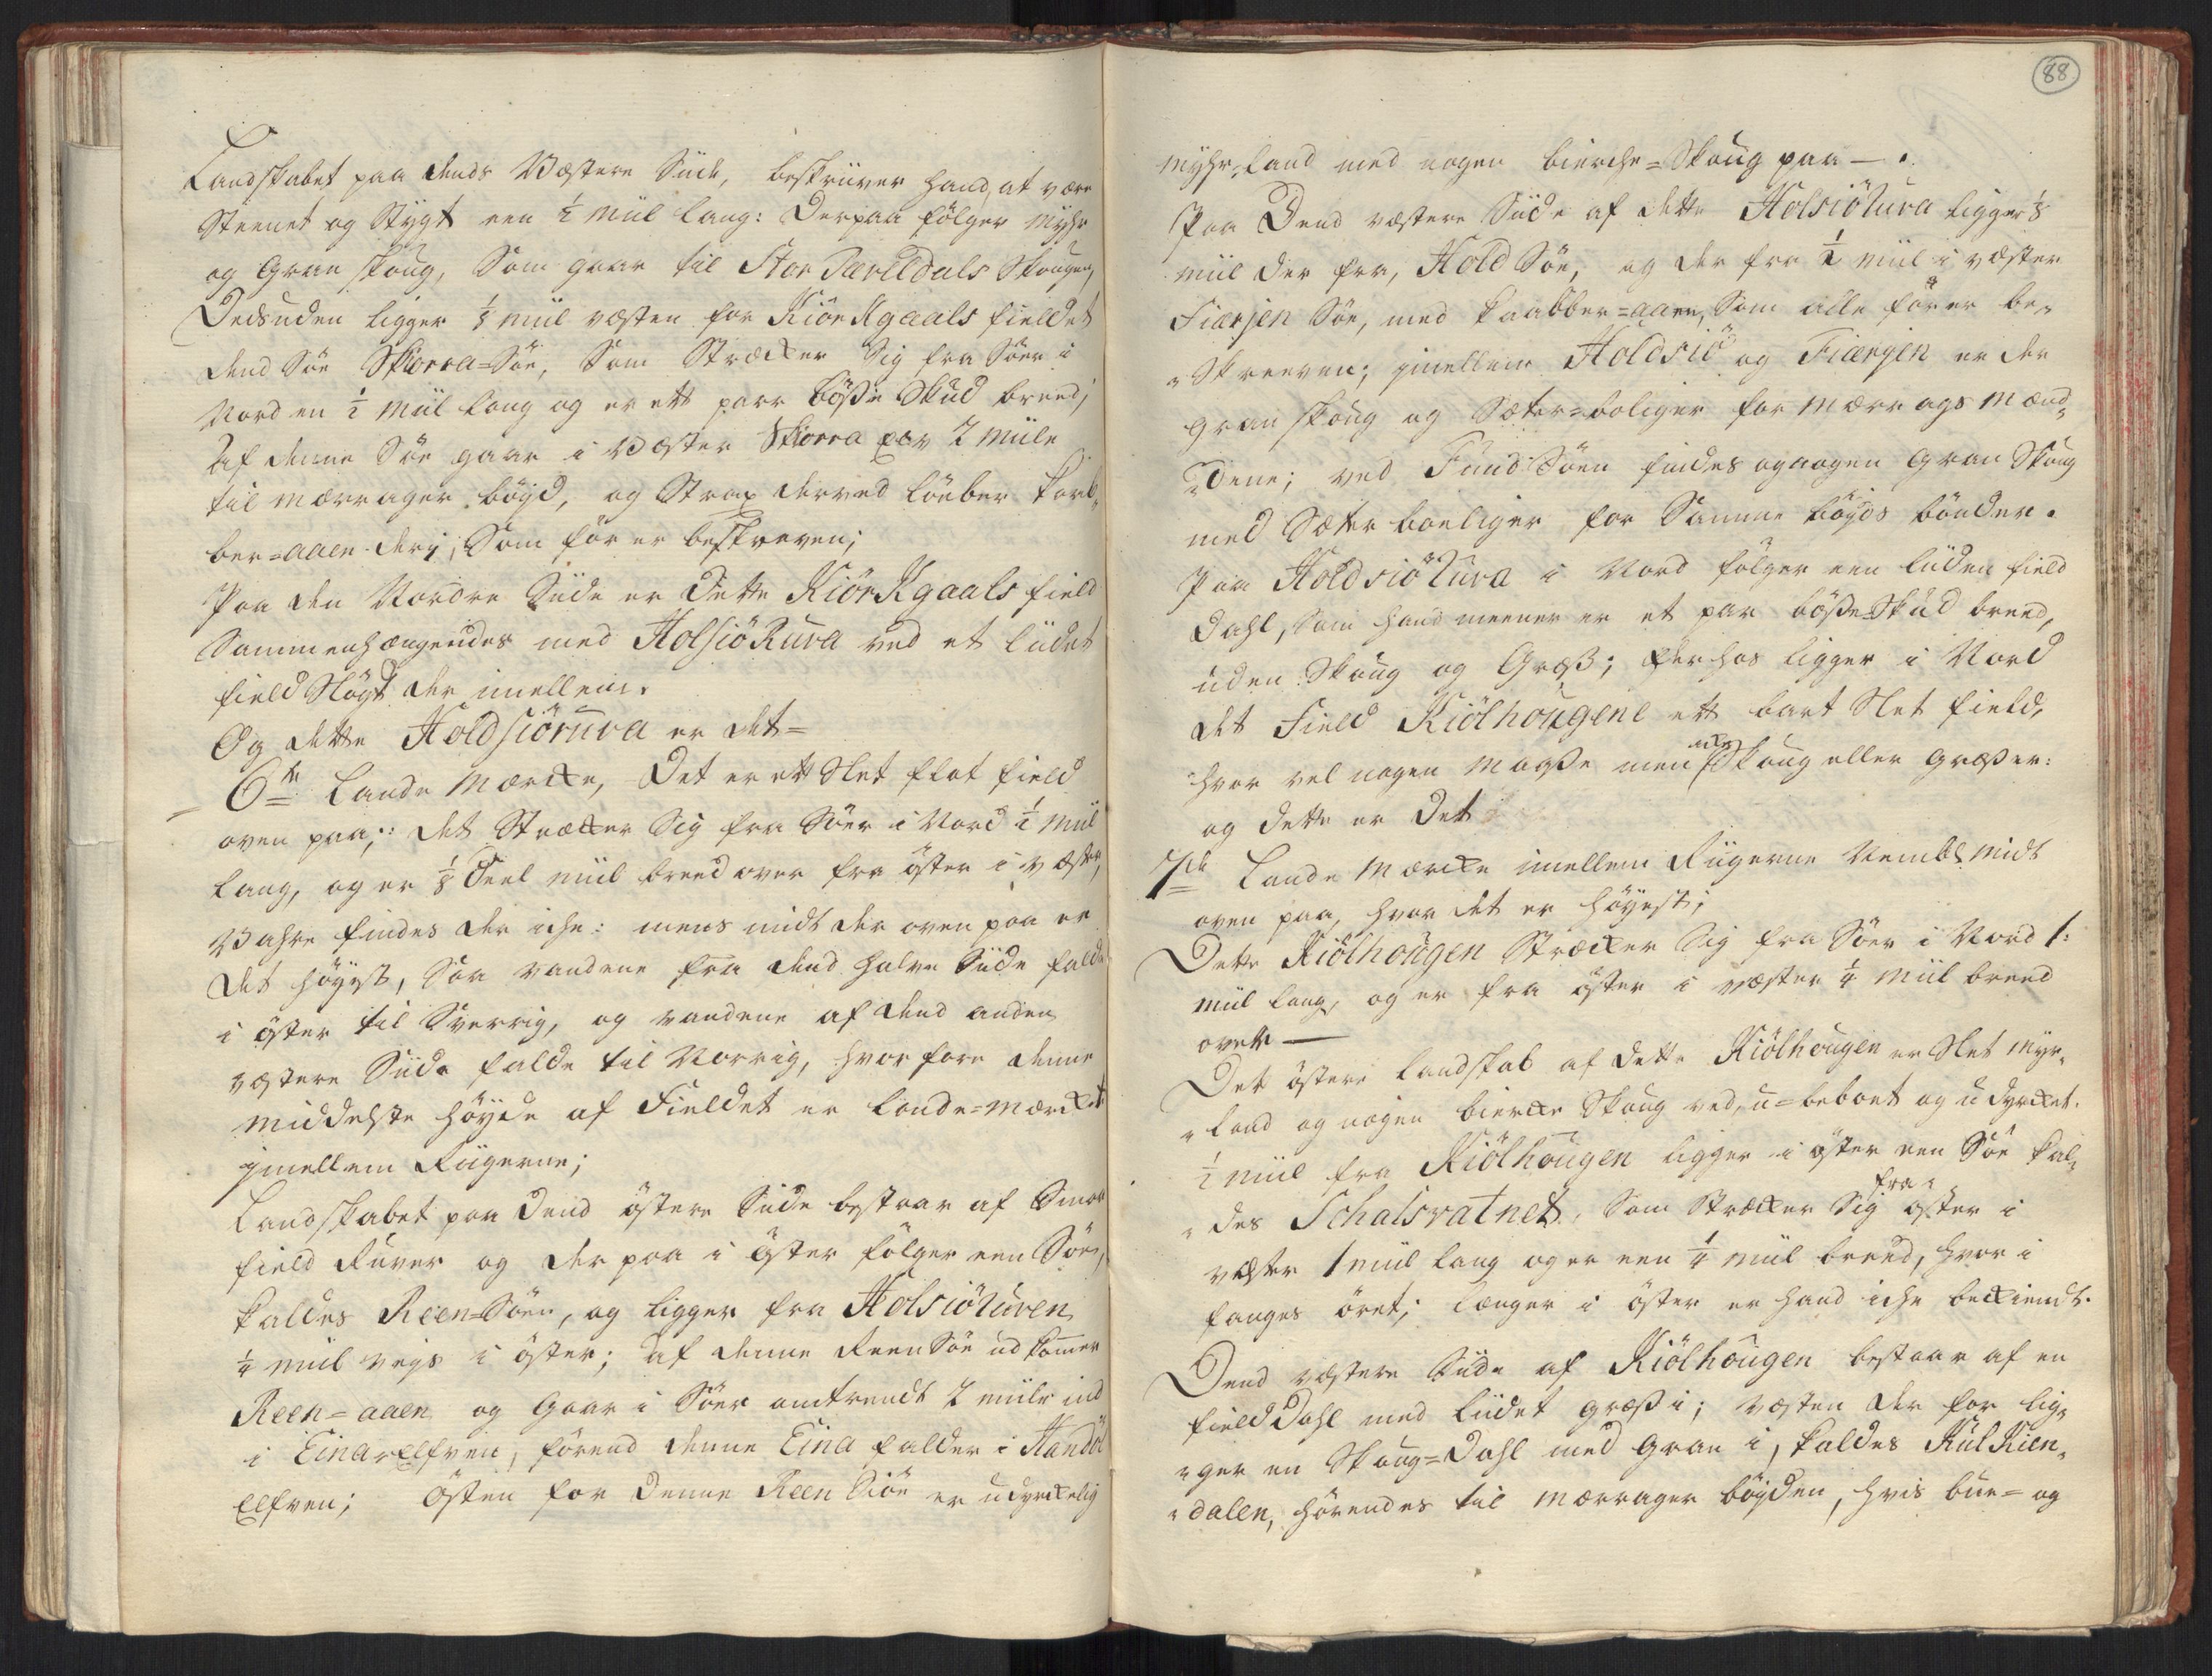 Landskabet paa dends Wæstere Siide, beskriiver hand, at være
Steenet og Stÿgt een ½ miil lang: Derpaa fölger mÿhr
og Gran skoug, Som gaar til Stor Pærildals Skougen,
Desuden ligger ⅛ miil væsten for Kiör Kgaals fieldet
dend Söe Skorra=Söe, Som Strækker Sig fra Söer i
Nord en ½ Miil lang og er ett parr bösse Skud breed;
Af denne Söe gaar i Wæster Skorra par 2 miile
til Mærrager böÿd, og Strax derved löeber Kaab„
ber=aaen derj, Som för er beskreven;
Paa den Nordre Siide er dette Kiör Kgaals field
Sammenhængendes med Holsiö Rüva ved et liidet
field Slögt der imellem.
Og dette Holdsiörüva er det=
6te Lande Mærcke, Det er ett Slet flat field
oven paa;: det Strækker Sig fra Söer i Nord ½ miil
lang, og er ⅛ Deel miil breed over fra öster i væster,
Wahre findes der iche: mens midt der oven paa er
det höÿest, Saa vandene fra dend halve Siide falde
i öster til Sverrig, og vandene af dend anden
væstere Siide falde til Norrig, hvorfore denne
middelste höÿde af Fieldet er lande=mærcket
jmellem Riigerne;
Landskabet paa dend östere Siide bestaar af Smaa
field Ruver og der paa i Öster fölger een Söe,
kaldes Reen=Söen, og ligger fra Holsiörüven
¼ miil veÿs i öster; Af denne Reen Söe udkommer
Reen=aaen og gaar i Söer omtrendt 2 miile ind
i Einar Elfven, förend denne Eina falder i Handöl
Elfven; Östen for denne Reen Siöe er udÿrckelig
88
Mÿhr„land med nogen bierche=Skoug paa —.
Paa Dend væstere Siide af dette Holsiörüva ligger ⅛
miil der fra, Hold Söe, og der fra ½ miil i væster
Fiærjen Söe, med Kaabber=aaen, Som alle för er be„
„Skreeven; jmellem Holdsiö og Fiærgen er der
gran skoug og Sæter=boliger for Mærragsmænd„
„dene; ved Fünd Söen findes og nogen Gran Skoug
med Sæter boeliger for Samme böÿds bönder.
Paa Holdsiörüva i Nord fölger een liiden field
Dahl, Som hand meener er et par bösse=Skud breed,
uden Skoug og Græss; derhos ligger i Nord
det Field Kiölhougene ett bart Slet field,
hvor vel nogen Mosse men icke Skoug eller græs er:
og dette er Det
7de Lande Mærcke imellem Riigerne Nembl. midt
oven paa, hvor det er höÿest;
Dette Kiölhougen Strecker Sig fra Söer i Nord 1:
miil lang, og er fra öster i væster ¼ miil breed
over —
Det östere landskab af dette Kiölhougen er Slet mÿr„
„land og nogen biercke Skoug ved, u=beboet og udÿrcket.
½ miil fra Kiölhougen ligger i öster een Söe kal„
„des Schalsvatnet, Som Strækker Sig fra öster i
væster 1 miil lang og er een ¼ miil breed, hvor i
fanges öret; længer i öster er hand iche bekiendt.
Dend væstere Siide af Kiölhougen bestaar af en
field Dahl med liidet græss i; væsten der for lig„
„ger en Skoug=Dahl med Gran i, kaldes Kul Kien„
„dalen, hörendes til Mærrager böÿden, hvis bue= og